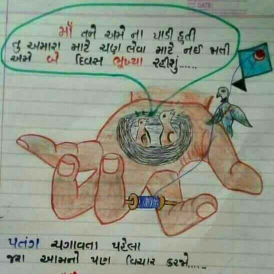 માઁ તને અમે ના પાડી હતી
તુ અમારા માટે ચણ લેવા માટે નઈ જતી
અમે બે દિવસ ભુખ્યા રહીશું.....
પતંગ ચગાવતા પહેલા
જરા આમનો પણ વિચાર કરજો....